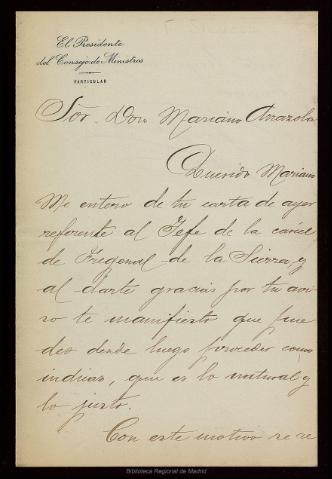 El Presidente
del Consejo de Ministros
PARTICULAR
Sor. Don Mariano
Querido Mariano
Me entero de tu carta de ayer
referente al Jefe de la cárcel
de Fregenal de la Sierra, y
al darte gracias por tu avi-
so te manifiesto que pue
des desde luego proceder como
indicas, que es lo natural y
lo justo.
Con este motivo se re
Biblioteca Regional de Madrid